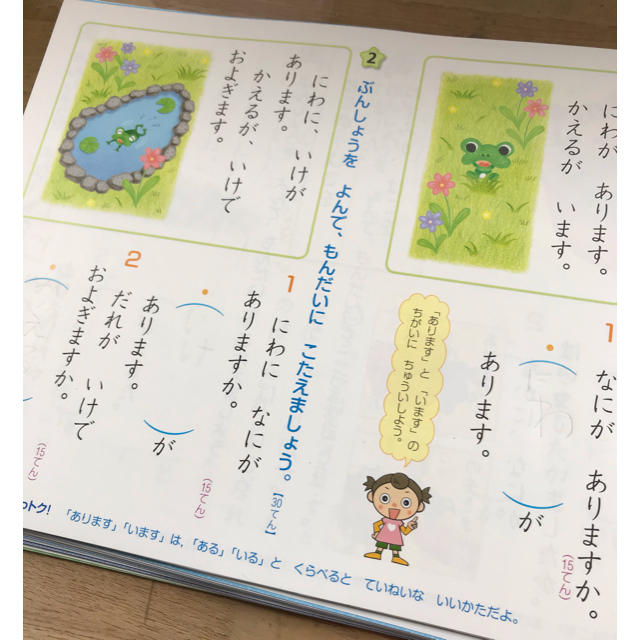 にわが あります。
かえるが います。
1
なにが ありますか。
(15てん)
( )が
あります。
「あります」と「います」の
ちがいに ちゅういしよう。
2
ぶんしょうを よんで、もんだいに こたえましょう。
【30てん】
にわに、いけが
あります。
かえるが、いけで
およぎます。
1
にわに なにが
ありますか。
(15てん)
( )が
あります。
2
だれが いけで
およぎますか。
(15てん)
トク!
「あります」「います」は,「ある」「いる」と くらべると ていねいな いいかただよ。